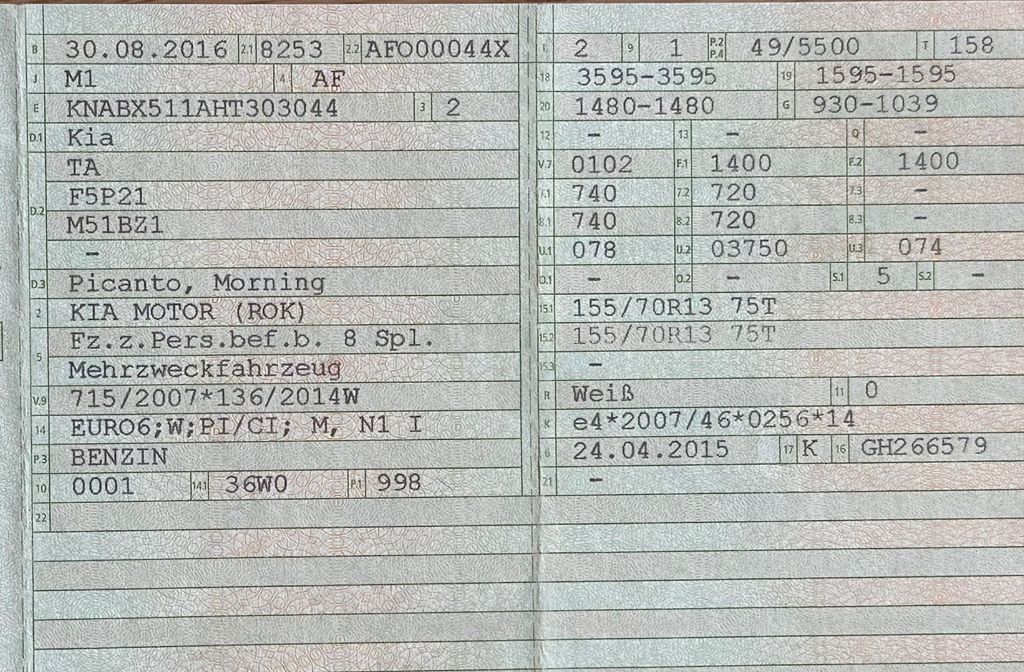 B 30.08.2016 2.1 8253 2.2 AFO00044X
J M1 4 AF
E KNABX511AHT303044 3 2
D.1 Kia
TA
D.2 F5P21
M51BZ1
–
D.3 Picanto, Morning
2 KIA MOTOR (ROK)
Fz.z.Pers.bef.b. 8 Spl.
5 Mehrzweckfahrzeug
V.9 715/2007*136/2014W
14 EURO6;W;PI/CI; M, N1 I
P.3 BENZIN
10 0001 14.1 36W0 P.1 998
22
L 2 9 1 P.2 P.4 49/5500 T 158
18 3595-3595 19 1595-1595
20 1480-1480 G 930-1039
12 – 13 – Q –
V.7 0102 F.1 1400 F.2 1400
7.1 740 7.2 720 7.3 –
8.1 740 8.2 720 8.3 –
U.1 078 U.2 03750 U.3 074
O.1 – O.2 – S.1 5 S.2 –
15.1 155/70R13 75T
15.2 155/70R13 75T
15.3 –
R Weiß 11 0
K e4*2007/46*0256*14
6 24.04.2015 17 K 16 GH266579
21 –